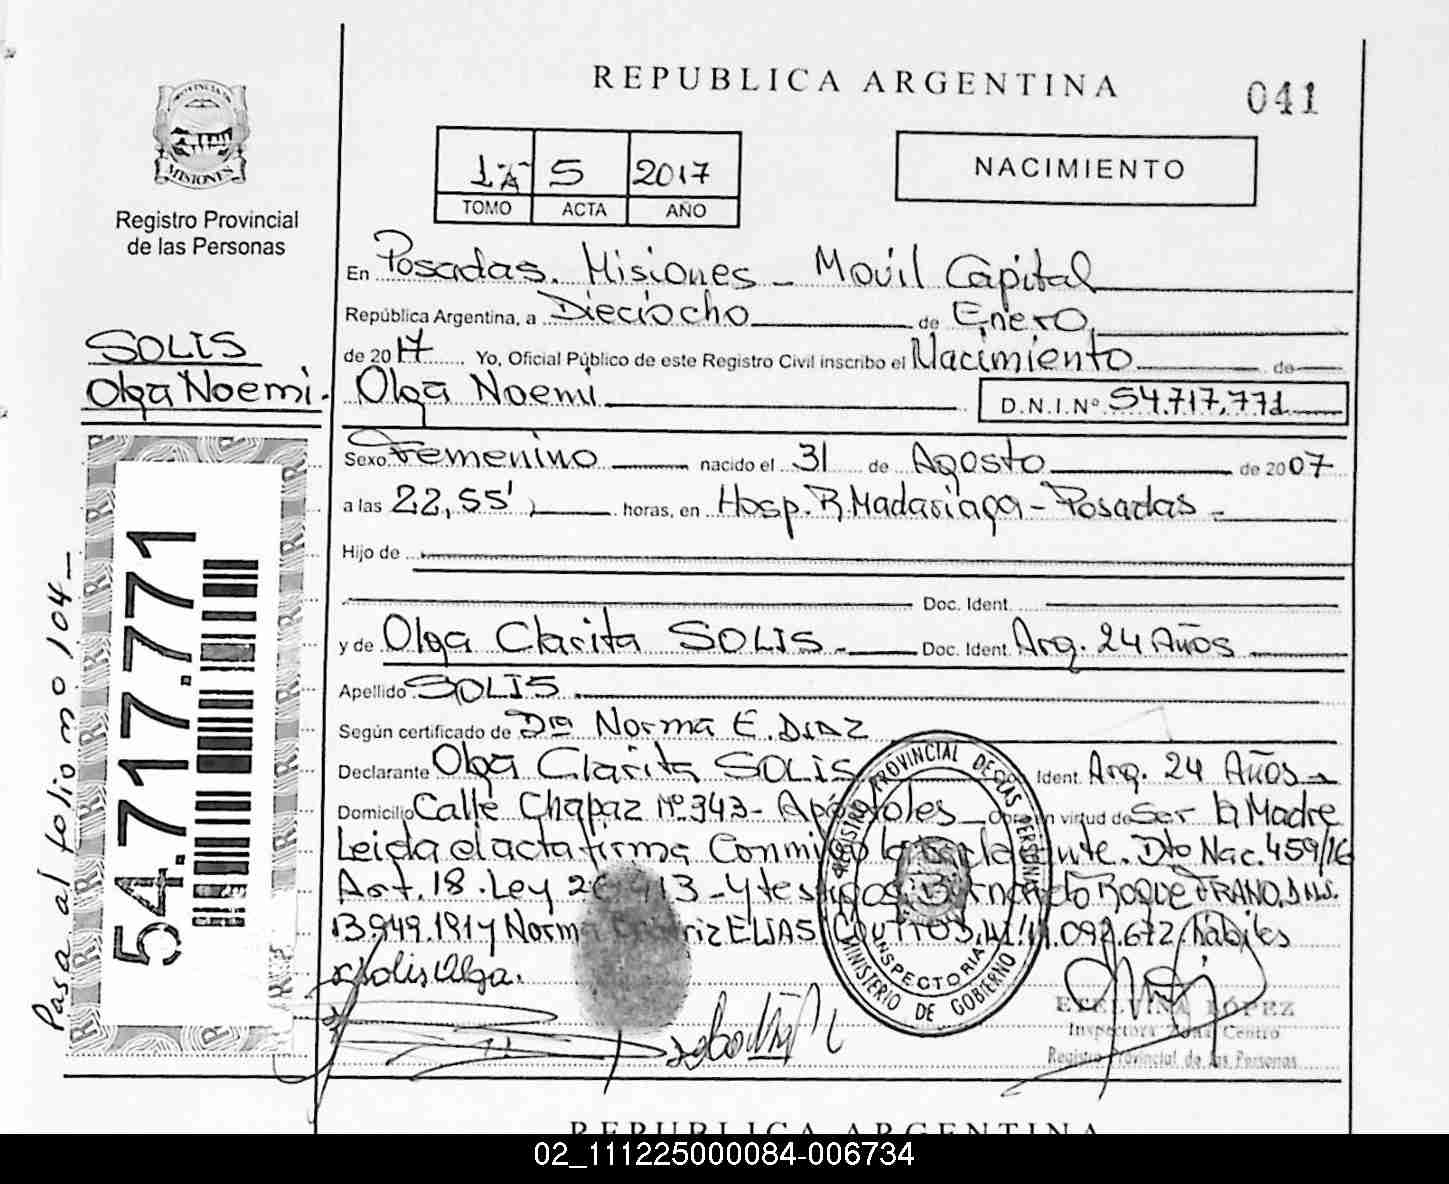 REPUBLICA ARGENTINA
041
PROVINCIA DE
MISIONES
Registro Provincial
de las Personas
1ªA 5 2017
TOMO ACTA AÑO
NACIMIENTO
En Posadas. Misiones - Movil Capital
República Argentina, a Dieciocho de Enero
de 2017 Yo, Oficial Público de este Registro Civil inscribo el Nacimiento de
Olga Noemi D.N.I.Nº 54.717.771
SOLIS
Olga Noemi.
Sexo Femenino nacido el 31 de Agosto de 2007
a las 22,55' horas, en Hosp. R. Madariaga - Posadas -
Hijo de
Doc. Ident.
y de Olga Clarita SOLIS Doc. Ident. Arg. 24 Años
Apellido SOLIS
Según certificado de Dra Norma E. DIAZ
Declarante Olga Clarita SOLIS Ident. Arg. 24 Años
Domicilio Calle Chapaz Nº 343 - Apóstoles Obra en virtud de Ser la Madre
Leida el acta firma Conmigo la Declarante. Dto Nac. 459/16
Art. 18. Ley 26.413 - y testigos Bernardo ROQUE FRANO. D.N.I.
13.949.191 y Norma Beatriz ELIAS COUTTO D.N.I. 11.092.672 hábiles
Solis Olga.
54.717.771
Pasa al folio nº 104
REGISTRO PROVINCIAL DE LAS PERSONAS
INSPECTORIA
MINISTERIO DE GOBIERNO
ETELVINA LÓPEZ
Inspectora Zona Centro
Registro Provincial de las Personas
REPUBLICA ARGENTINA
02_111225000084-006734